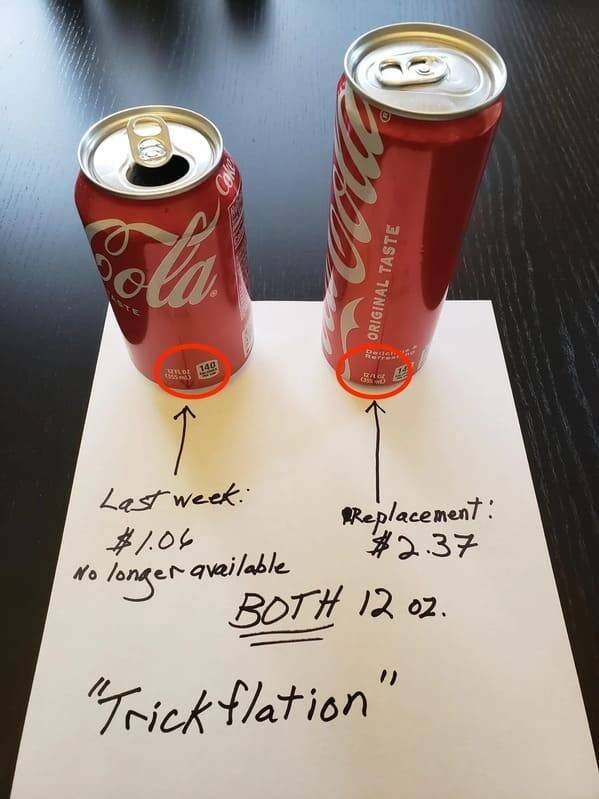 Cola
TASTE
Coke
12 FL OZ
(355 mL)
140
Cola
ORIGINAL TASTE
Delicious &
Refreshing
12 FL OZ
(355 mL)
Last week:
$1.06
No longer available
Replacement:
$2.37
BOTH 12 oz.
"Trickflation"